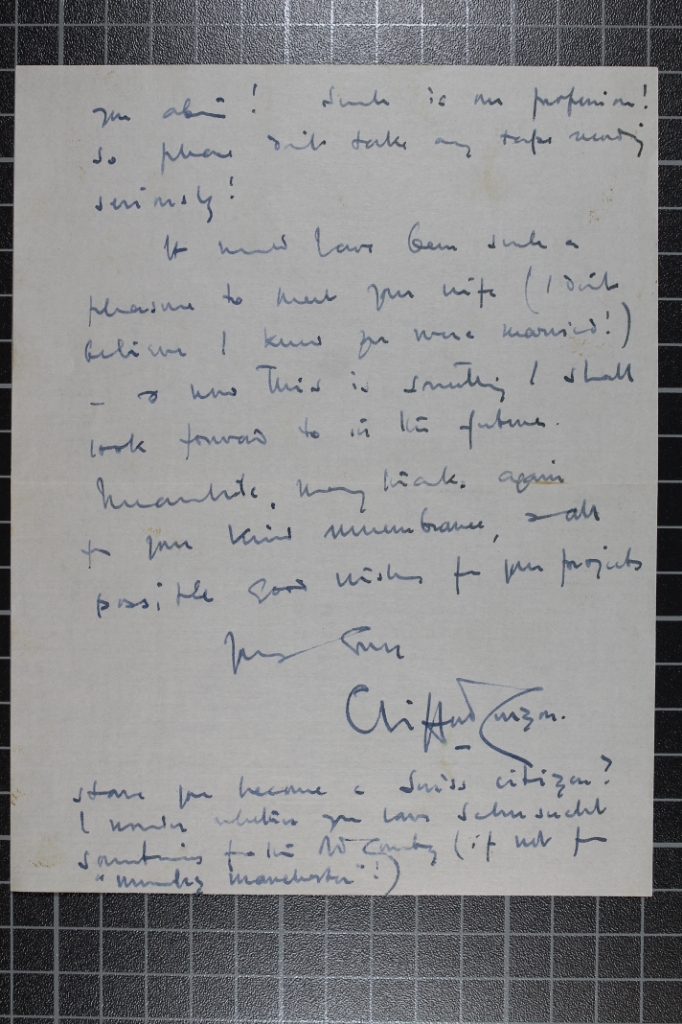 you alive! Such is our profession!
So please don't take any tape
seriously!
It would have been such a
pleasure to meet your wife (I don't
believe I knew you were married!)
- & now this is something I shall
look forward to in the future.
Meanwhile, many thanks again
for your kind remembrance, & all
possible good wishes for your projects
Yours Ever
Clifford Curzon.
Have you become a Swiss citizen?
I wonder whether you have Sehnsucht
sometimes for the Old Country (if not for
"Manchester"!)